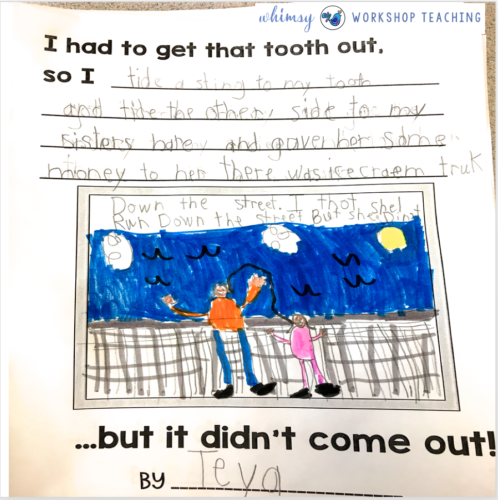 whimsy WORKSHOP TEACHING
I had to get that tooth out,
so I tide a sting to my tooth
and tide the other side to my
sisters hare and gaver her some
money to her there was icecraem truk
Down the street. I thot shel
Run Down the street But she Dint
...but it didn't come out!
BY Teya